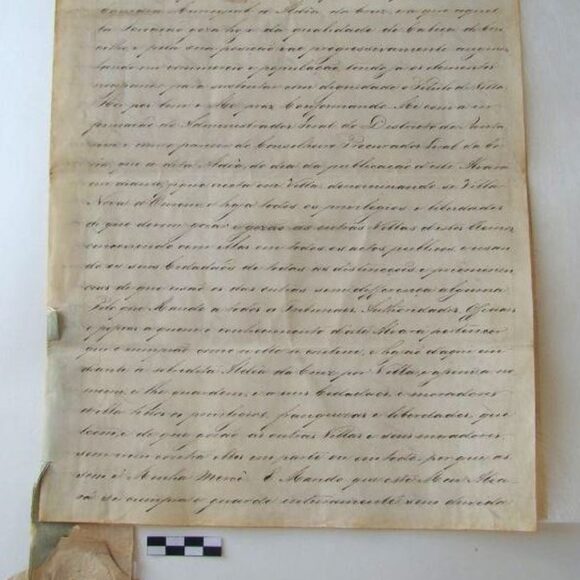 Municipal d'Aldêa da Cruz
goza hoje da qualidade de Cabeça de Con
celho, e pela sua posição vae progressivamente augmen
tando em commercio e população, tendo
para sustentar com dignidade o Titulo de Villa
Hei por bem e Me praz Conformando Me com a in
formação do Administrador Geral do Districto de Santa
rem e com o parecer do Conselheiro Procurador Geral da Co
rôa, que a dita Aldêa, do dia da publicação d'este Alvará
em diante, fique erecta em Villa, denominando se Villa
Nova d'Ourem e haja todos os privilegios e liberdades
de que devem gozar e gozão as outras Villas d'estes Reinos,
concorrendo com ellas em todos os actos publicos, e usan
do os seus Cidadãos de todas as distincções, e preeminen
cias de que usão os das outras sem differença alguma
Pelo que Mando a todos os Tribunaes, Authoridades, Officiaes
e pessoas a quem o conhecimento d'este Alvará pertencer
que o cumprão como n'elle se contem, e hajão d'aqui em
diante a sobredita Aldêa da Cruz por Villa, e assim a no
meem, e lhe guardem, e a seus Cidadãos e moradores
d'ella todos os privilegios, franquezas e liberdades, que
tem, e de que gozão as outras Villas e seus moradores
sem mingoa nem em parte ou em todo, porque as
sim é Minha Mercê. E Mando que este Meu Alva
rá se cumpra e guarde inteiramente sem duvida